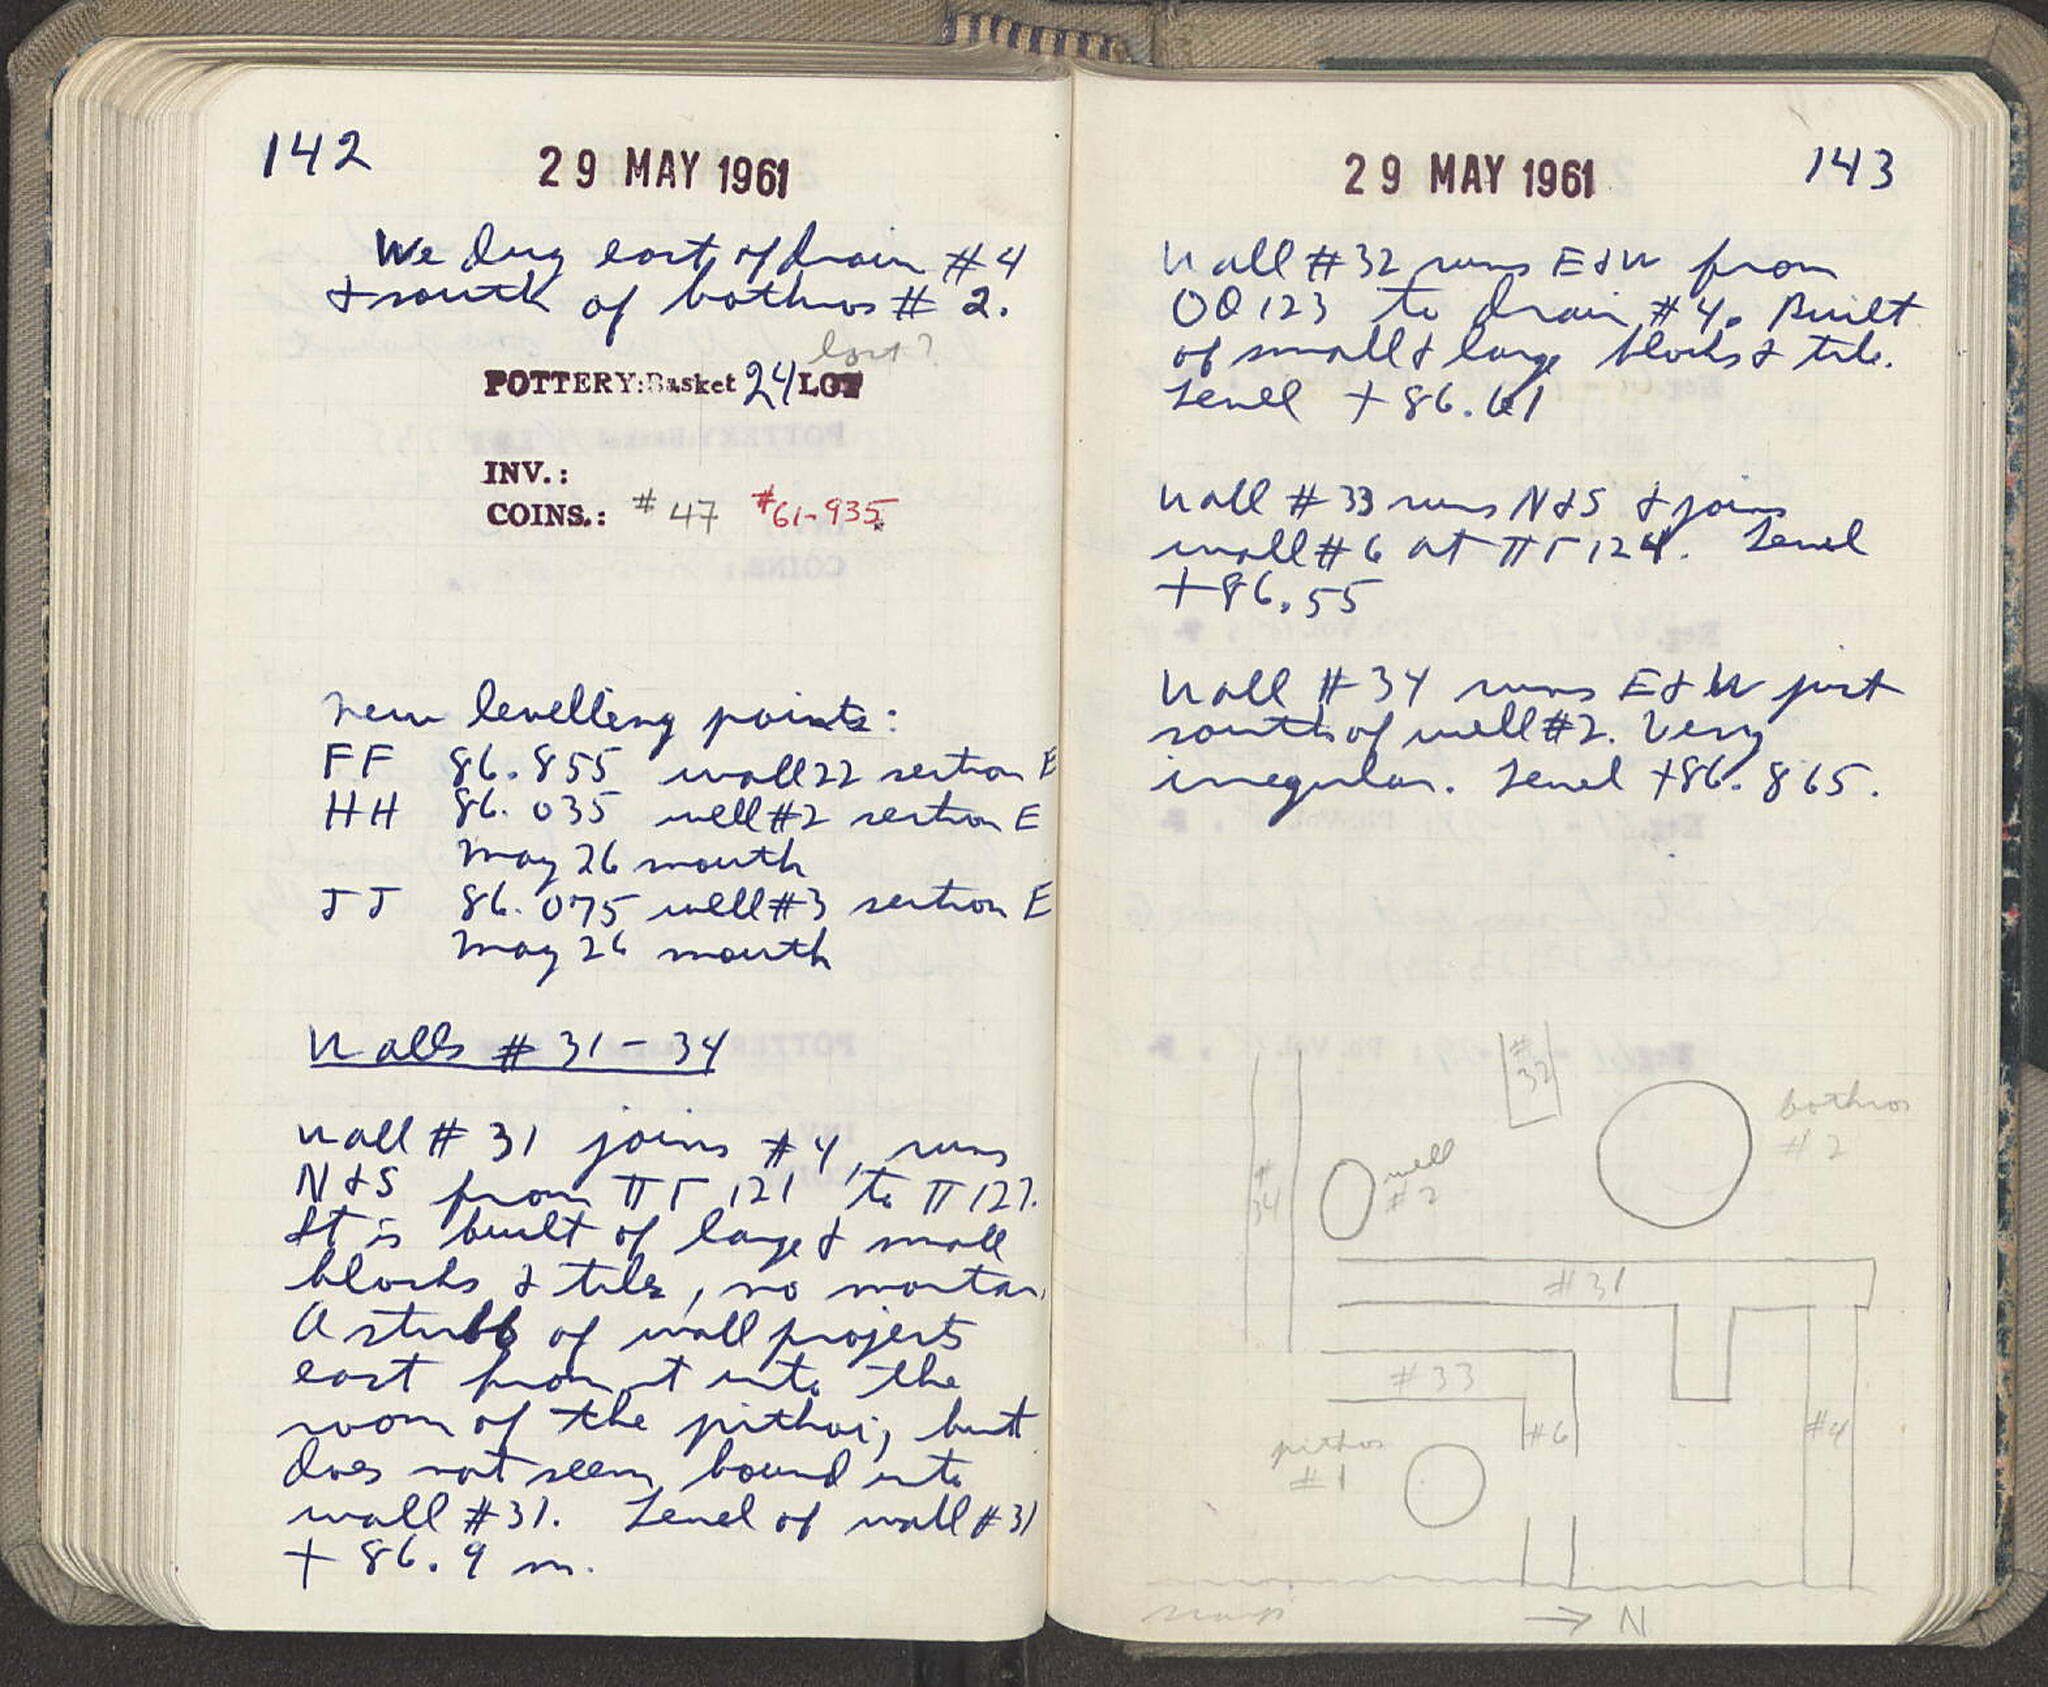 142
29 MAY 1961
We dug east of drain #4
& south of bothros # 2.
lost?
POTTERY: Basket 24 LOT
INV.:
COINS.: # 47 #61-935
new levelling points:
FF 86.855 wall 22 section E
HH 86.035 well #2 section E
May 26 mouth
JJ 86.075 well #3 section E
May 26 mouth
Walls # 31-34
Wall # 31 joins #4, runs
N & S from ΠΓ 121 to Π 127.
It is built of large & small
blocks & tile, no mortar.
A stubb of wall projects
east from it into the
room of the pithoi, but
does not seem bound into
wall #31. Level of wall #31
+ 86.9 m.
29 MAY 1961
143
Wall #32 runs E & W from
OΘ 123 to drain #4. Built
of small & large blocks & tile.
Level + 86.61
Wall # 33 runs N & S & joins
wall #6 at ΠΓ 124. Level
+86.55
Wall #34 runs E & W just
south of well #2. Very
irregular. Level +86.865.
#
32
bothros
# 2
well
# 2
#
34
#31
#33
#6
#4
pithos
#1
scarp
→ N